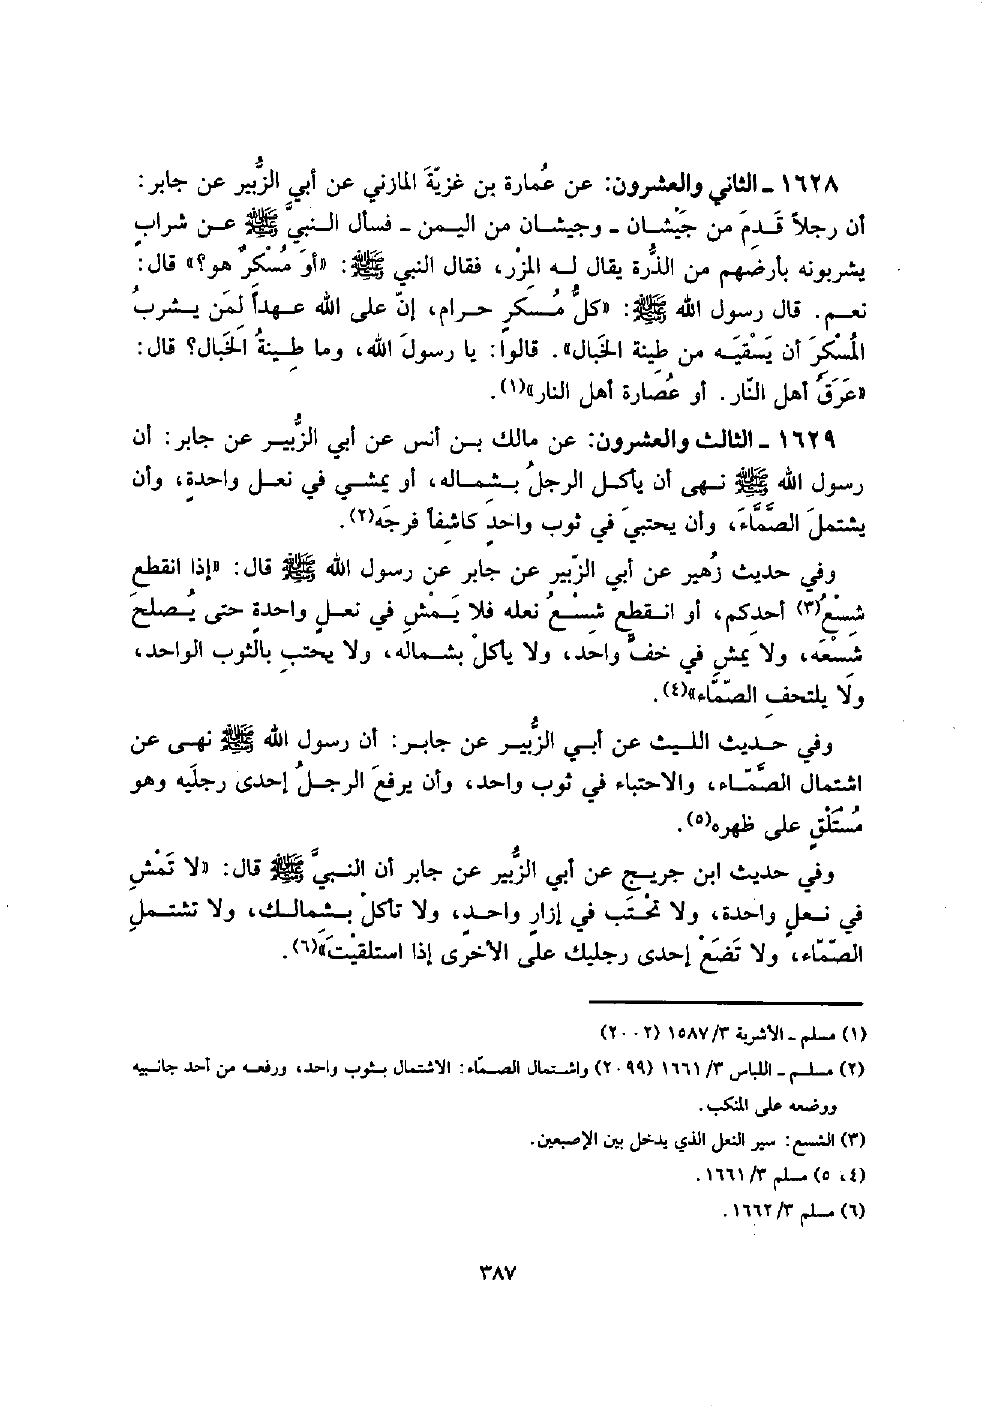 ١٦٢٨ ـ الثاني والعشرون: عن عُمارة بن غزيّةَ المازني عن أبي الزُّبير عن جابر:
أن رجلاً قَدِمَ من جَيْشان ـ وجيشان من اليمن ـ فسأل النبيَّ ﷺ عن شرابٍ
يشربونه بأرضهم من الذُّرة يقال له المِزْر، فقال النبي ﷺ: «أوَ مُسْكِرٌ هو؟» قال:
نعم. قال رسول الله ﷺ: «كلُّ مُسكرٍ حرام، إنّ على الله عهداً لمَن يشربُ
المُسْكِرَ أن يَسْقيَه من طينة الخَبال». قالوا: يا رسولَ الله، وما طينةُ الخَبال؟ قال:
«عَرَقُ أهل النّار. أو عُصارة أهل النار»(١).
١٦٢٩ ـ الثالث والعشرون: عن مالك بن أنس عن أبي الزُّبير عن جابر: أن
رسول الله ﷺ نهى أن يأكل الرجلُ بشماله، أو يمشي في نعل واحدةٍ، وأن
يشتملَ الصَّمَّاءَ، وأن يحتبيَ في ثوب واحدٍ كاشِفاً فرجَه(٢).
وفي حديث زُهير عن أبي الزّبير عن جابر عن رسول الله ﷺ قال: «إذا انقطع
شِسْعُ(٣) أحدِكم، أو انقطع شِسْعُ نعله فلا يَمْشِ في نعلٍ واحدةٍ حتى يُصلحَ
شِسْعَه، ولا يمشِ في خفٍّ واحد، ولا يأكلْ بشماله، ولا يحتبِ بالثوب الواحد،
ولا يلتحفِ الصّمّاء»(٤).
وفي حديث الليث عن أبي الزُّبير عن جابر: أن رسول الله ﷺ نهى عن
اشتمال الصَّمّاء، والاحتباء في ثوب واحد، وأن يرفعَ الرجلُ إحدى رجلَيه وهو
مُسْتَلْقٍ على ظهره(٥).
وفي حديث ابن جريج عن أبي الزُّبير عن جابر أن النبيَّ ﷺ قال: «لا تَمْشِ
في نعلٍ واحدة، ولا تحْتَبِ في إزارٍ واحدٍ، ولا تأكلْ بشمالك، ولا تشتملِ
الصّمّاء، ولا تَضَعْ إحدى رجليك على الأخرى إذا استلقيْتَ»(٦).
(١) مسلم ـ الأشربة ٣/ ١٥٨٧ (٢٠٠٢)
(٢) مسلم ـ اللباس ٣/ ١٦٦١ (٢٠٩٩) واشتمال الصمّاء: الاشتمال بثوب واحد، ورفعه من أحد جانبيه
ووضعه على المنكب.
(٣) الشسع: سير النعل الذي يدخل بين الإصبعين.
(٤، ٥) مسلم ٣/ ١٦٦١.
(٦) مسلم ٣/ ١٦٦٢.
٣٨٧